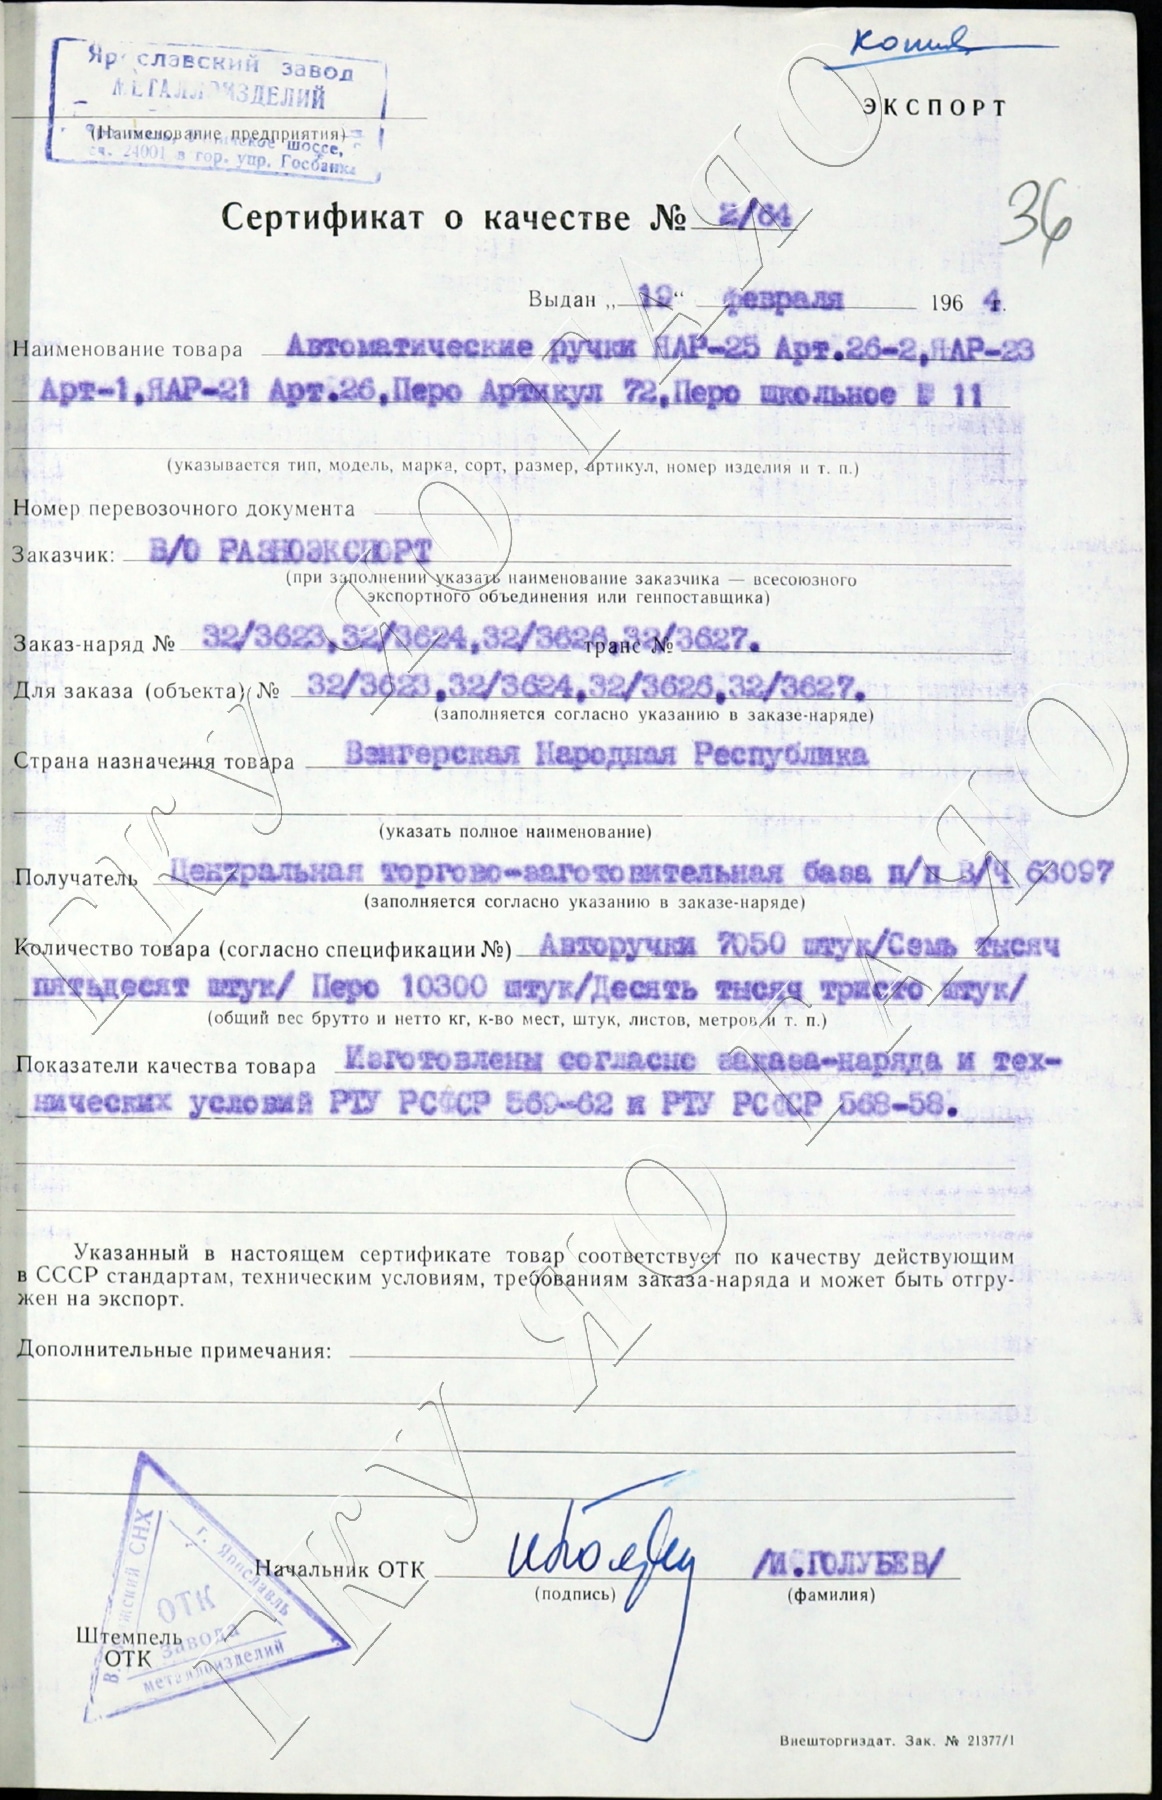 копия
Ярославский завод
МЕТАЛЛОИЗДЕЛИЙ
ЭКСПОРТ
(Наименование предприятия)
шоссе,
сч. 24001 в гор. упр. Госбанка
Сертификат о качестве № 2/64
36
Выдан „19“ февраля 1964 г.
Наименование товара Автоматические ручки ЯАР-25 Арт.26-2,ЯАР-23
Арт-1,ЯАР-21 Арт.26,Перо Артикул 72,Перо школьное № 11
(указывается тип, модель, марка, сорт, размер, артикул, номер изделия и т. п.)
Номер перевозочного документа
Заказчик: В/О РАЗНОЭКСПОРТ
(при заполнении указать наименование заказчика — всесоюзного
экспортного объединения или генпоставщика)
Заказ-наряд № 32/3623,32/3624,32/3626,32/3627. транс №
Для заказа (объекта) № 32/3623,32/3624,32/3626,32/3627.
(заполняется согласно указанию в заказе-наряде)
Страна назначения товара Венгерская Народная Республика
(указать полное наименование)
Получатель Центральная торгово-заготовительная база п/п В/Ч 63097
(заполняется согласно указанию в заказе-наряде)
Количество товара (согласно спецификации №) Авторучки 7050 штук/Семь тысяч
пятьдесят штук/ Перо 10300 штук/Десять тысяч тристо штук/
(общий вес брутто и нетто кг, к-во мест, штук, листов, метров и т. п.)
Показатели качества товара Изготовлены согласно заказа-наряда и тех-
нических условий РТУ РСФСР 569-62 и РТУ РСФСР 568-58.
Указанный в настоящем сертификате товар соответствует по качеству действующим
в СССР стандартам, техническим условиям, требованиям заказа-наряда и может быть отгру-
жен на экспорт.
Дополнительные примечания:
Начальник ОТК /И.ГОЛУБЕВ/
(подпись) (фамилия)
Штемпель
ОТК
СНХ
г. Ярославль
ОТК
завода
металлоизделий
Внешторгиздат. Зак. № 21377/1
ГКУ ЯО ГАЯО
ГКУ ЯО ГАЯО